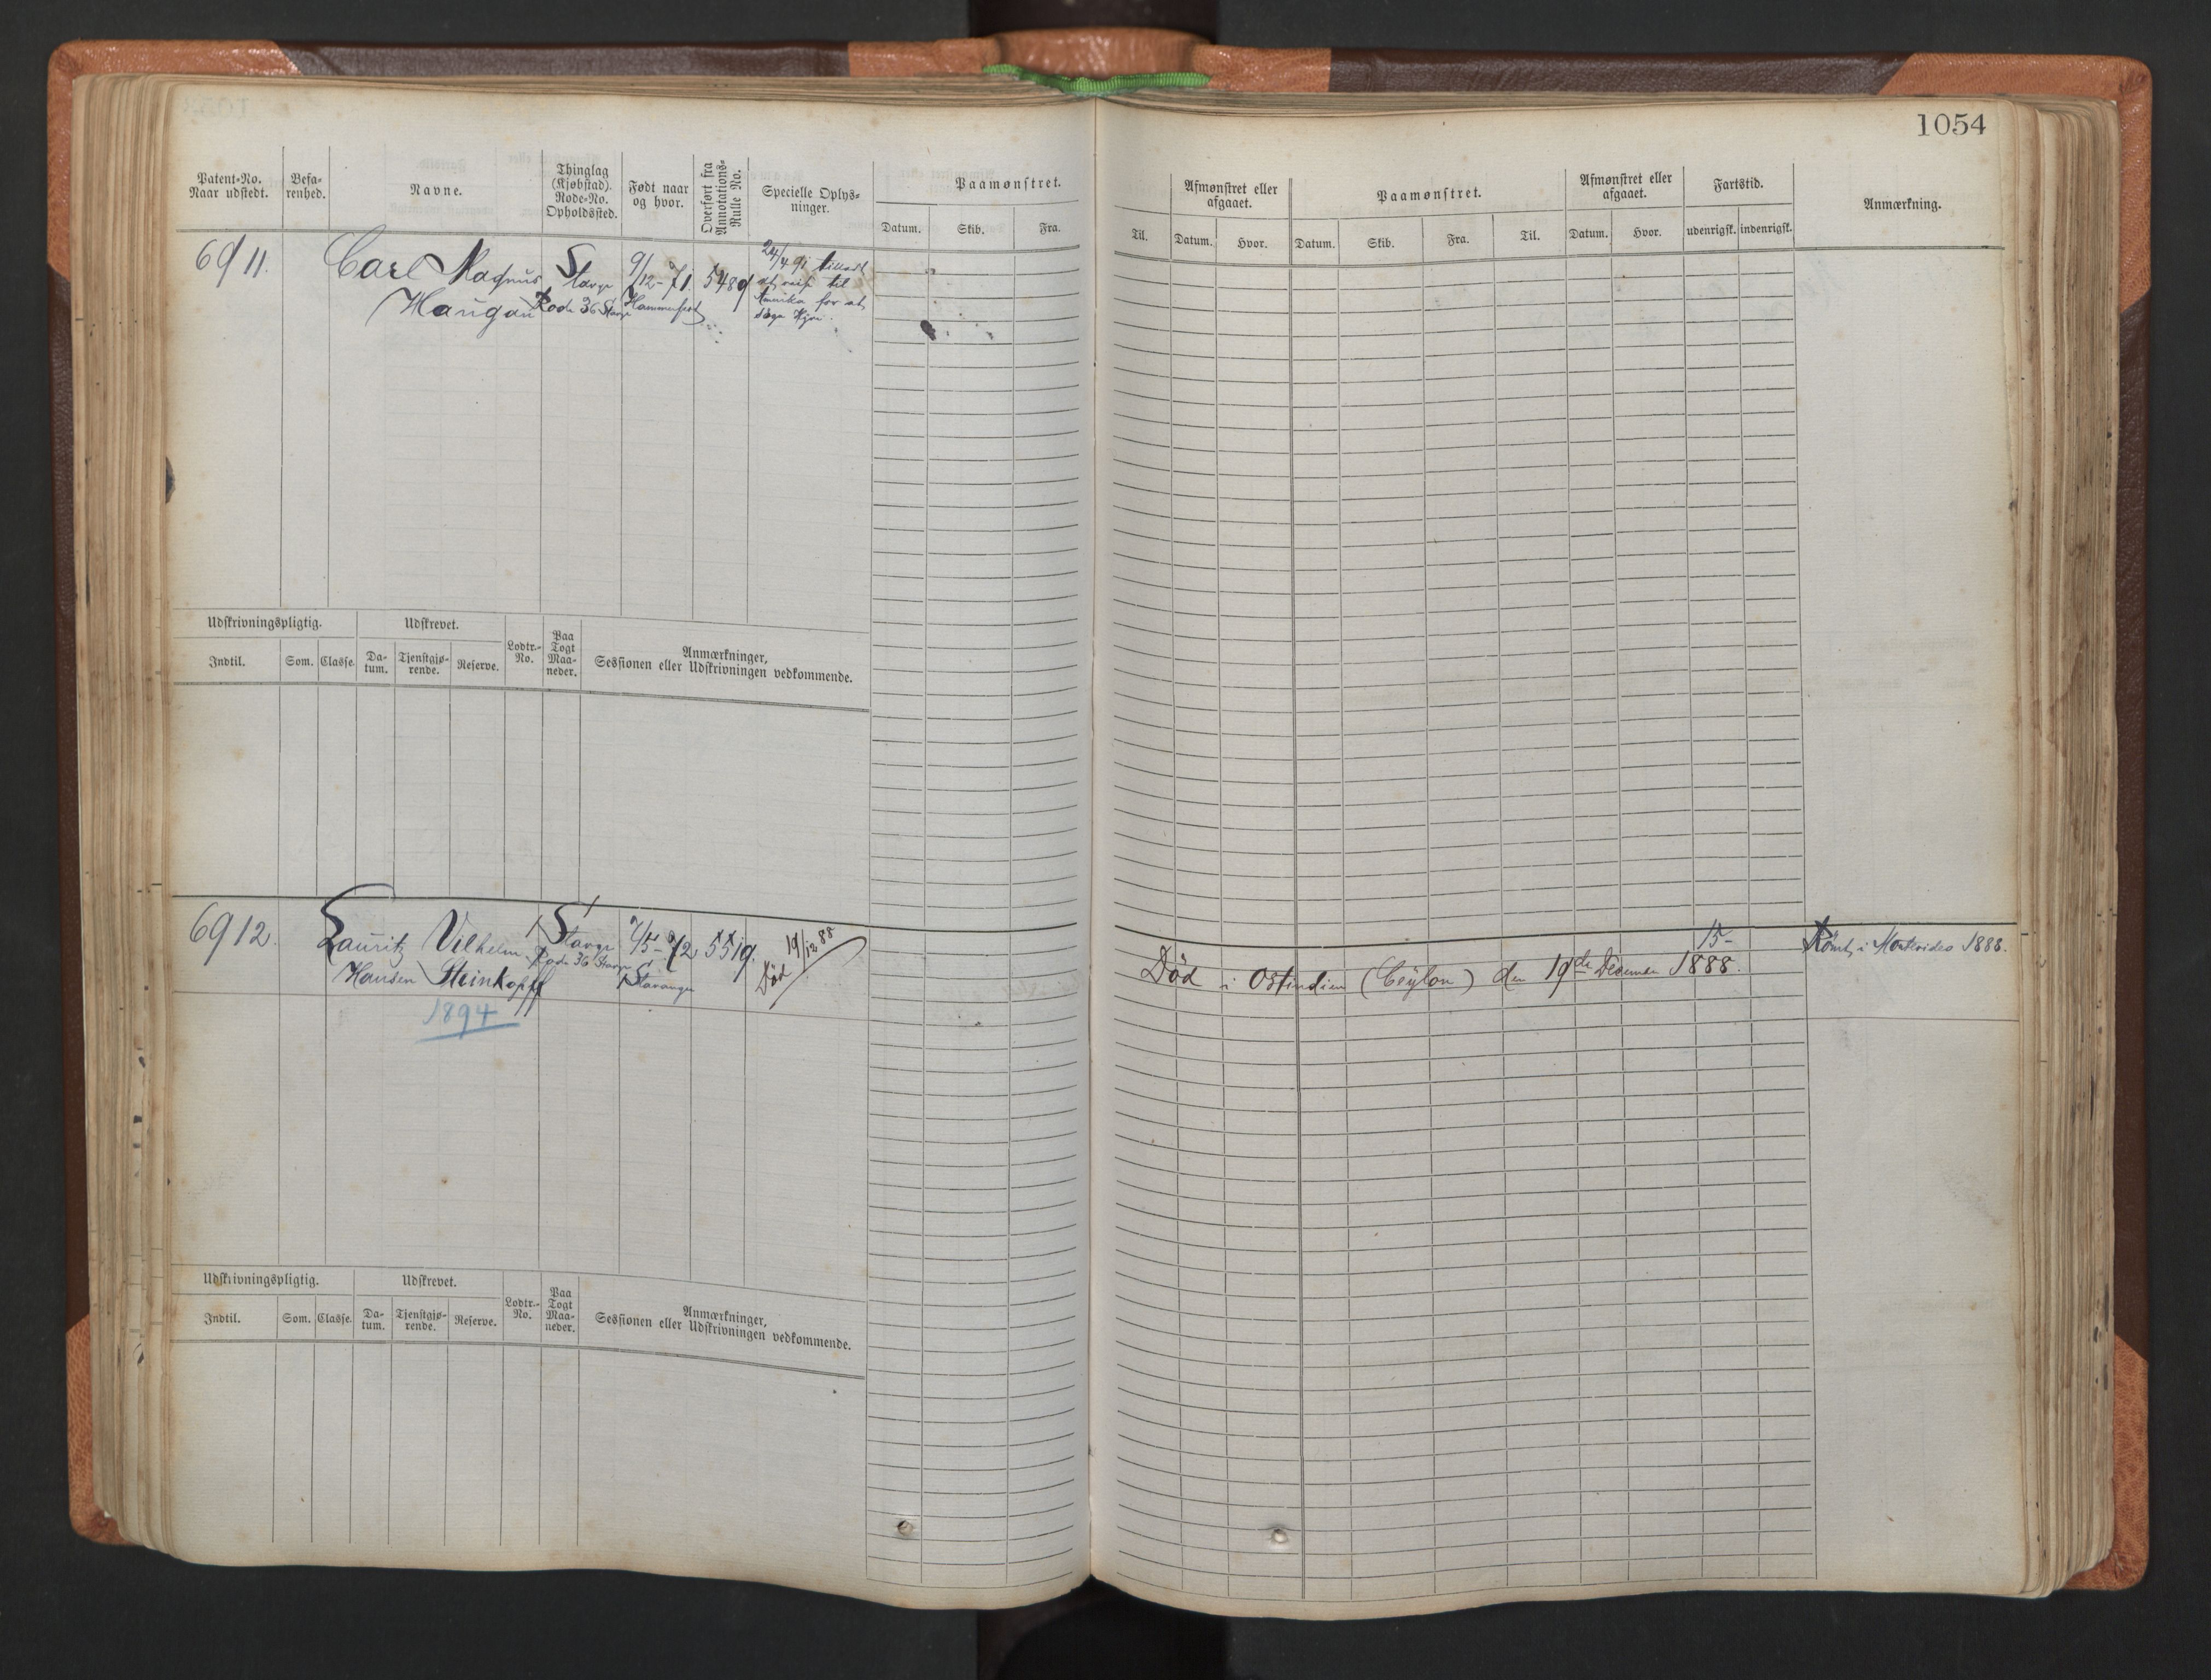 1054
Patent-No. Naar udstedt.
Befa-renhed.
Navne.
Thinglag (Kjøbstad). Rode-No. Opholdssted.
Født naar og hvor.
Overført fra Annotations-Rulle No.
Specielle Oplys-ninger.
Paamønstret.
Datum. Skib. Fra.
Til.
Afmønstret eller afgaaet.
Datum. Hvor.
Paamønstret.
Datum. Skib. Fra. Til.
Afmønstret eller afgaaet.
Datum. Hvor.
Fartstid.
udenrigsk. indenrigsk.
Anmærkning.
6911. Carl Magnus Stavgr 9/12-71. 5489 24/4 91 tilladt
Haugan Rode 36 Stavgr Hammerfest
at reise til
Amerika for at
søge Hyre.
Udskrivningspligtig. Udskrevet.
Indtil. Som. Classe. Da-tum. Tjenstgjø-rende. Reserve. Lodtr.-No. Paa Togt Maa-neder.
Anmærkninger,
Sessionen eller Udskrivningen vedkommende.
6912. Lauritz Vilhelm Stavgr 9/5-72 5519. Død 19/12 88
Hansen Steinkopff Rode 36 Stavgr Stavanger
1894
15-
Død i Ostindien (Ceylon) den 19de December 1888.
Rømt i Montevideo 1888.
Udskrivningspligtig. Udskrevet.
Indtil. Som. Classe. Da-tum. Tjenstgjø-rende. Reserve. Lodtr.-No. Paa Togt Maa-neder.
Anmærkninger,
Sessionen eller Udskrivningen vedkommende.